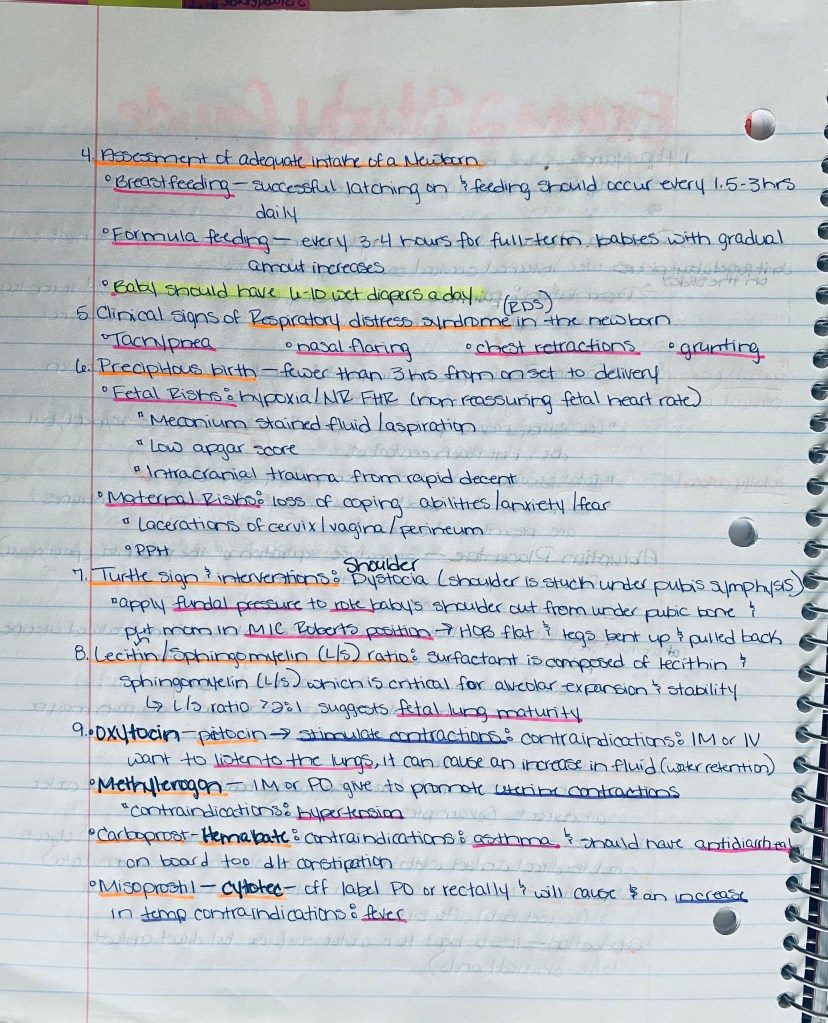 4. Assessment of adequate intake of a Newborn
° Breastfeeding – successful latching on & feeding should occur every 1.5-3hrs
daily
° Formula feeding – every 3-4 hours for full-term babies with gradual
amout increases
° Baby should have 6-10 wet diapers a day.
5. Clinical signs of Respiratory distress syndrome (RDS) in the newborn
° Tachypnea ° nasal flaring ° chest retractions ° grunting
6. Precipitous birth – fewer than 3 hrs from onset to delivery
° Fetal Risks: hypoxia/NR FHR (non reassuring fetal heart rate)
▫ Meconium stained fluid / aspiration
▫ Low apgar score
▫ Intracranial trauma from rapid decent
° Maternal Risks: loss of coping abilities/anxiety/fear
▫ Lacerations of cervix/vagina/perineum
▫ PPH
7. Turtle sign & interventions: Shoulder Dystocia (shoulder is stuck under pubis symphysis)
▫ apply fundal pressure to rote baby's shoulder out from under pubic bone &
put mom in MIC Roberts position → HOB flat & legs bent up & pulled back
8. Lecitin/Sphingomyelin (L/S) ratio: surfactant is composed of lecithin &
sphingomyelin (L/S) which is critical for alveolar expansion & stability
↳ L/S ratio >2:1 suggests fetal lung maturity
9. ° Oxytocin – pitocin → stimulate contractions: contraindications: IM or IV
want to listen to the lungs, it can cause an increase in fluid (water retention)
° Methylerogon – IM or PO give to promote uterine contractions
▫ contraindications: hypertension
° Carboprost – Hemabate: contraindications: asthma & should have antidiarrheal
on board too d/t constipation
° Misoprostil – cytotec – off label PO or rectally & will cause & an increase
in temp contraindications: fever